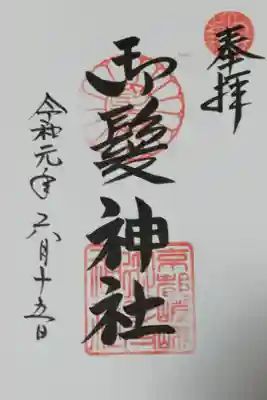 奉拝
御髪神社
令和元年六月十五日